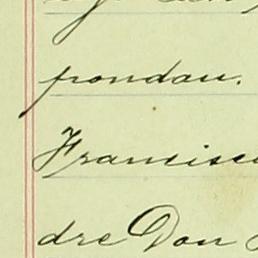 pondau.
Francisc
dre Don